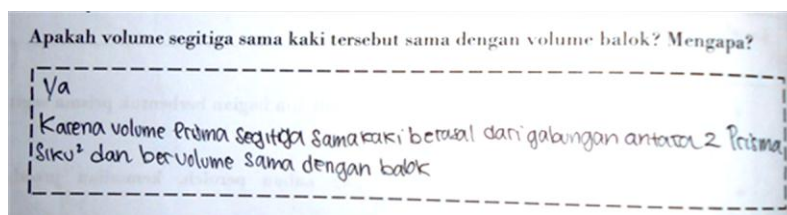 Apakah volume segitiga sama kaki tersebut sama dengan volume balok? Mengapa?
Ya
Karena volume Prisma segitiga samakaki berasal dari gabungan antara 2 Prisma
Siku² dan bervolume sama dengan balok